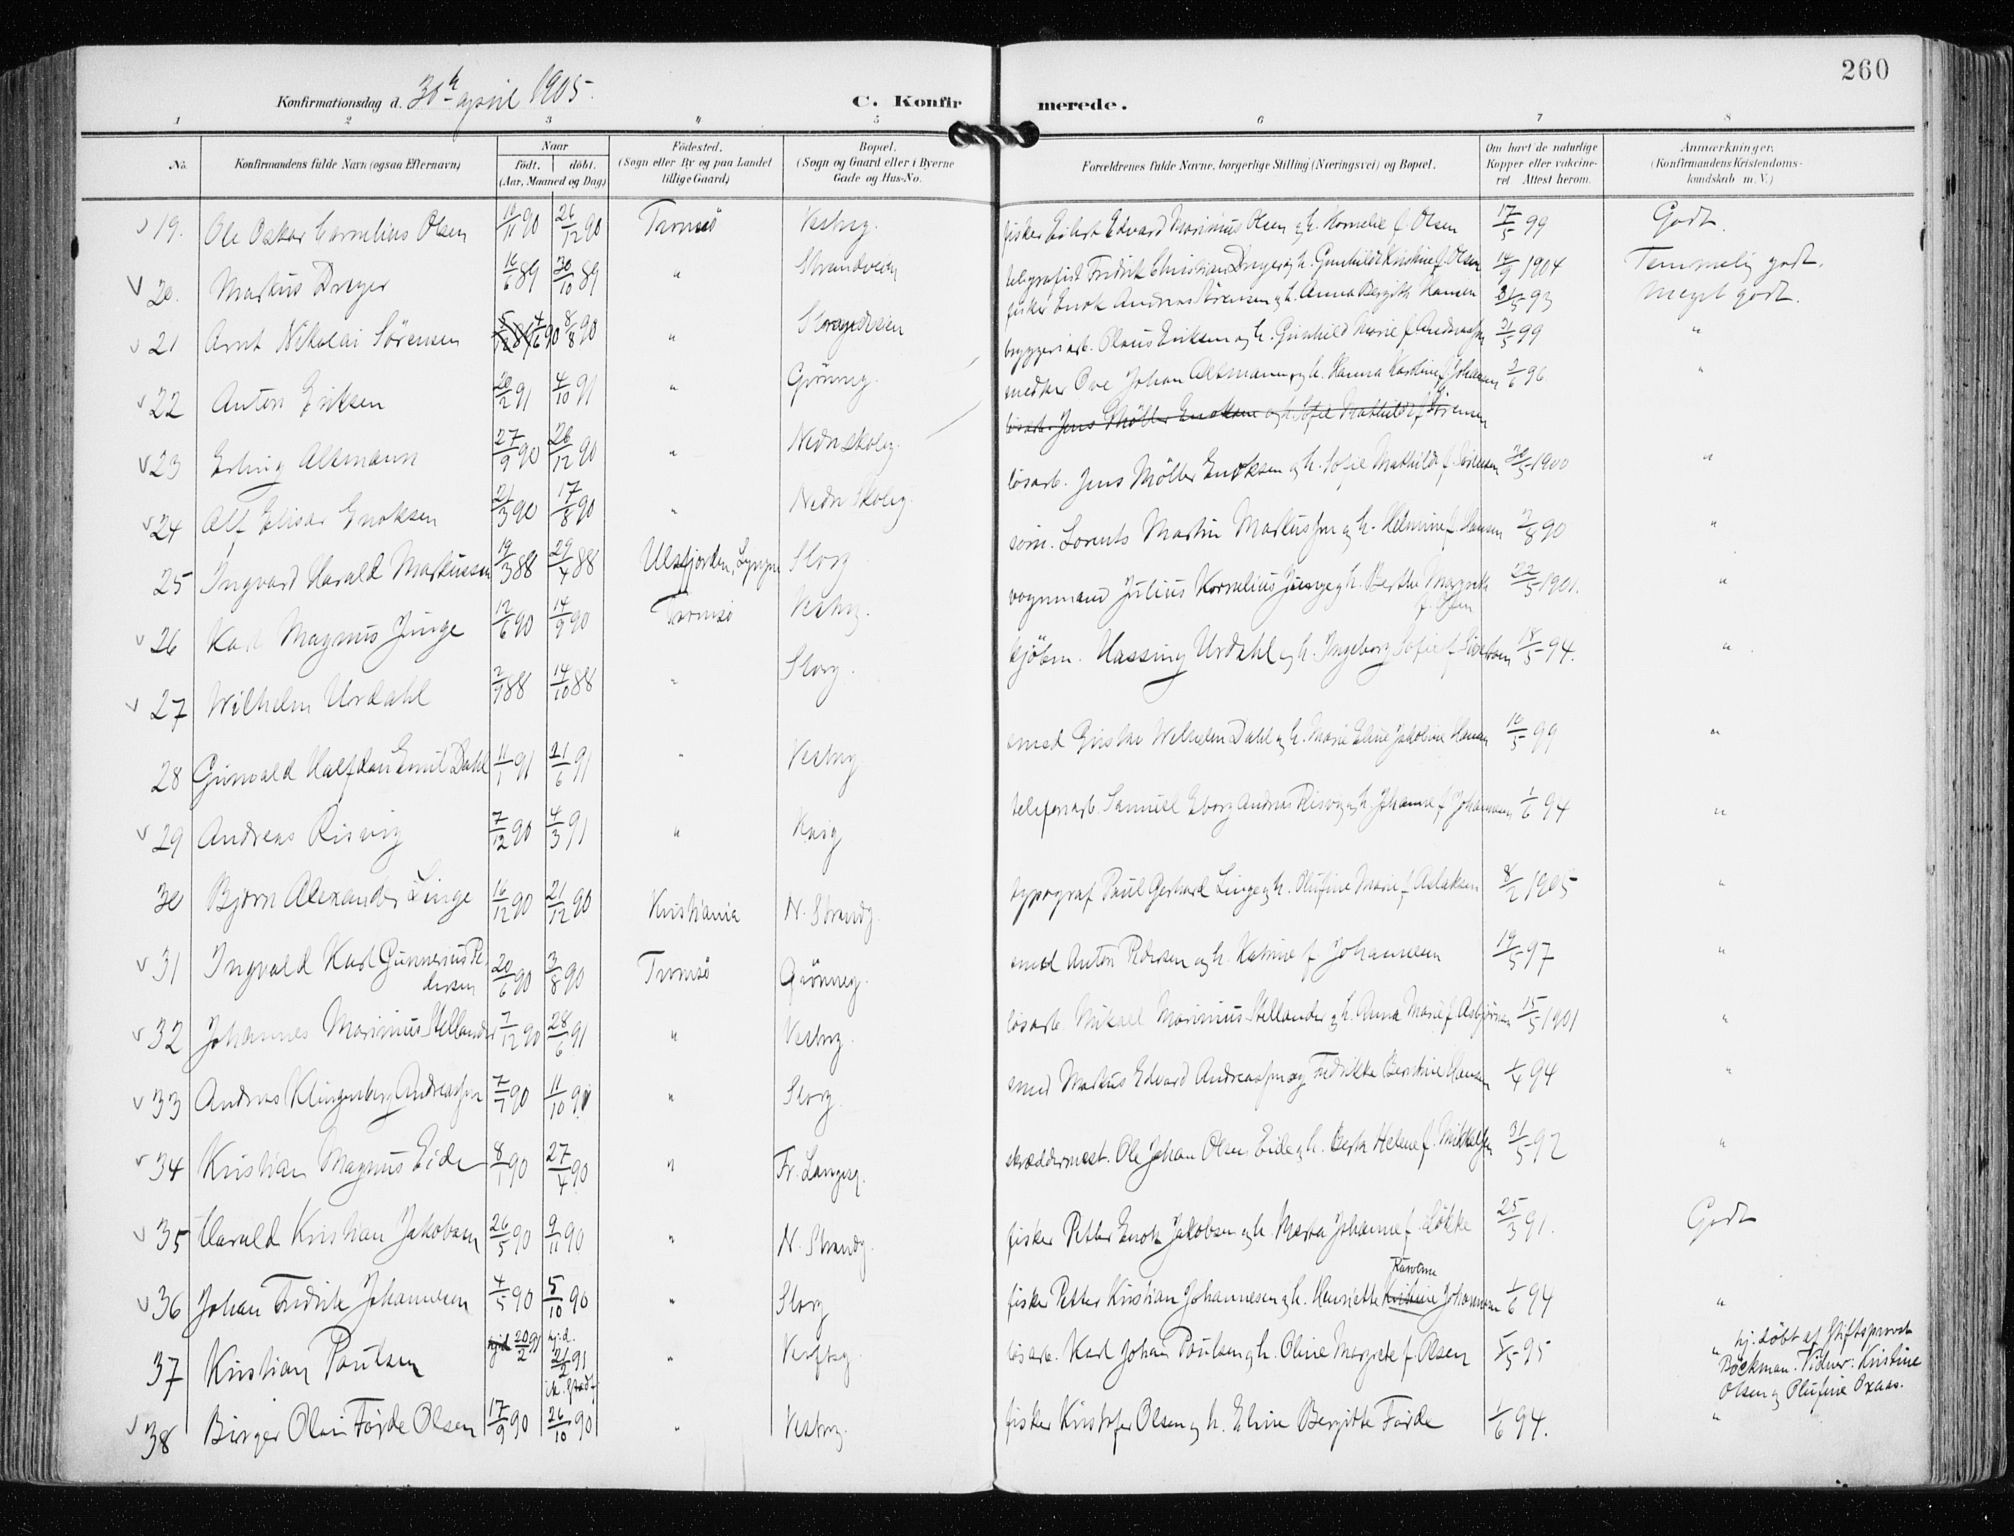 260
Konfirmationsdag d. 30te april 1905.
C. Konfirmerede.
1 2 3 4 5 6 7 8
No. Konfirmandens fulde Navn (ogsaa Efternavn)
Naar födt. döbt. (Aar, Maaned og Dag)
Födested. (Sogn eller By og paa Landet tillige Gaard)
Bopæl. (Sogn og Gaard eller i Byerne Gade og Hus-No.
Forældrenes fulde Navne, borgerlige Stilling (Næringsvei) og Bopæl.
Om havt de naturlige Kopper eller vakcineret Attest herom.
Anmærkninger. (Konfirmandens Kristendomskundskab m. V.)
19. Ole Oskar Cornelius Olsen 10/11 90 26/12 90 Tromsö Vestrg. fisker Edvard Marinius Olsen og h. Kornelie f. Olsen 17/5 99 Godt.
20. Markus Dreyer 16/6 89 30/10 89 " Strandveien telegrafist Fredrik Christian Dreyer og h. Gunhild Kristine f. Olsen 14/9 1904 Temmelig godt.
21 Arnt Nikolai Sörensen 4/6 90 8/8 90 " fisker Enok Andreas Sörensen og h. Anna Bergith Hansen 31/5 93 Meget godt.
22 Anton Eriksen 20/2 91 4/10 91 " Grönneg. bryggeriarb. Olaus Eriksen og h. Gunhild Marie f. Andreassen 31/5 99 "
23 Erling Altmann 27/9 90 26/12 90 " Nedre Skoleg. Ove Johan Altmann og h. Hanna Karoline f. Johansen 2/6 96 "
lösarb. Jens Möller Enoksen og h. Sofie Mathilde f. Sörensen
24 Alf Elisar Enoksen 21/3 90 17/8 90 " Nedre Skoleg. lösarb. Jens Möller Enoksen og h. Sofie Mathilde f. Sörensen 30/5 1900 "
25 Ingvard Harald Markussen 19/3 88 29/4 88 Ulsfjorden, Lyngen Storg Lorents Martin Markussen og h. Helmine f. Hansen 2/8 90 "
26 Karl Magnus Junge 12/6 90 14/9 90 Tromsö Vestrg. vognmand Julius Kornelius Junge og h. Berthe Magreth f. Olsen 22/5 1901. "
27 Wilhelm Urdahl 2/7 88 14/10 88 " Storg. kjöbm. Hassing Urdahl og h. Ingeborg Sofie f. 18/5 94. "
28 Gunvald Halfdan Emil Dahl 11/1 91 21/6 91 " Vestrg smed Gustav Wilhelm Dahl og h. Marie Eline Jakobine Hansen 16/5 99 "
29 Andreas Risvig 7/12 90 4/3 91 " telefonarb. Samuel Andreas Risvig og h. Johanne f. Johannesen 1/6 94 "
30 Bjørn Alexander Linge 16/12 90 21/12 90 Kristiania N. Strandg. typograf Paul Gerhard Linge og h. Olufine Marie f. Aslaksen 8/2 1905 "
31 Ingvald Karl Gunnerius Pedersen 20/6 90 3/8 90 Tromsö Grönneg. smed Anton Pedersen og h. Katrine f. Johannesen 19/5 97 "
32 Johannes Marinius Stellander 7/12 90 28/6 91 " Vestrg. lösarb. Mikael Marinius Stellander og h. Anna Marie f. Asbjörnsen 15/5 1901 "
33 Andreas Klingenberg Andreassen 7/7 90 11/10 90 " Storg. smed Markus Edvard Andreassen og Fredrikke Berntine Hansen 1/4 94 "
34 Kristian Magnus Eide 8/1 90 27/4 90 " Fr. Langesg. skræddermest. Ole Johan Olsen Eide og h. Berta Helene f. Mikkelsen 31/5 92 "
35 Harald Kristian Jakobsen 26/5 90 9/11 90 " N. Strandg. fisker Petter Enok Jakobsen og h. Marta Johanne f. Lökke 25/3 91. Godt
36 Johan Fredrik Johannesen 4/5 90 5/10 90 " Storg fisker Petter Kristian Johannesen og h. Henriette Kristine Karoline Johannesen 1/6 94 "
37 Kristian Paulsen 20/2 91 hj.d. 21/2 91 " Verftsg. lösarb. Karl Johan Paulsen og h. Oline Margrete f. Olsen 5/5 95 " hj. döbt af Stiftsprovst Böckman. Vidner: Kristine Olsen og Olufine Oxaas.
38 Birger Olai Förde Olsen 17/9 90 26/10 90 " Vestrg. fisker Kristofer Olsen og h. Eline Bergitte Förde 1/6 94. "